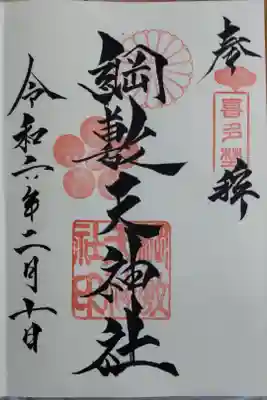 奉拝
喜多埜
綱敷天神社
令和六年二月十日